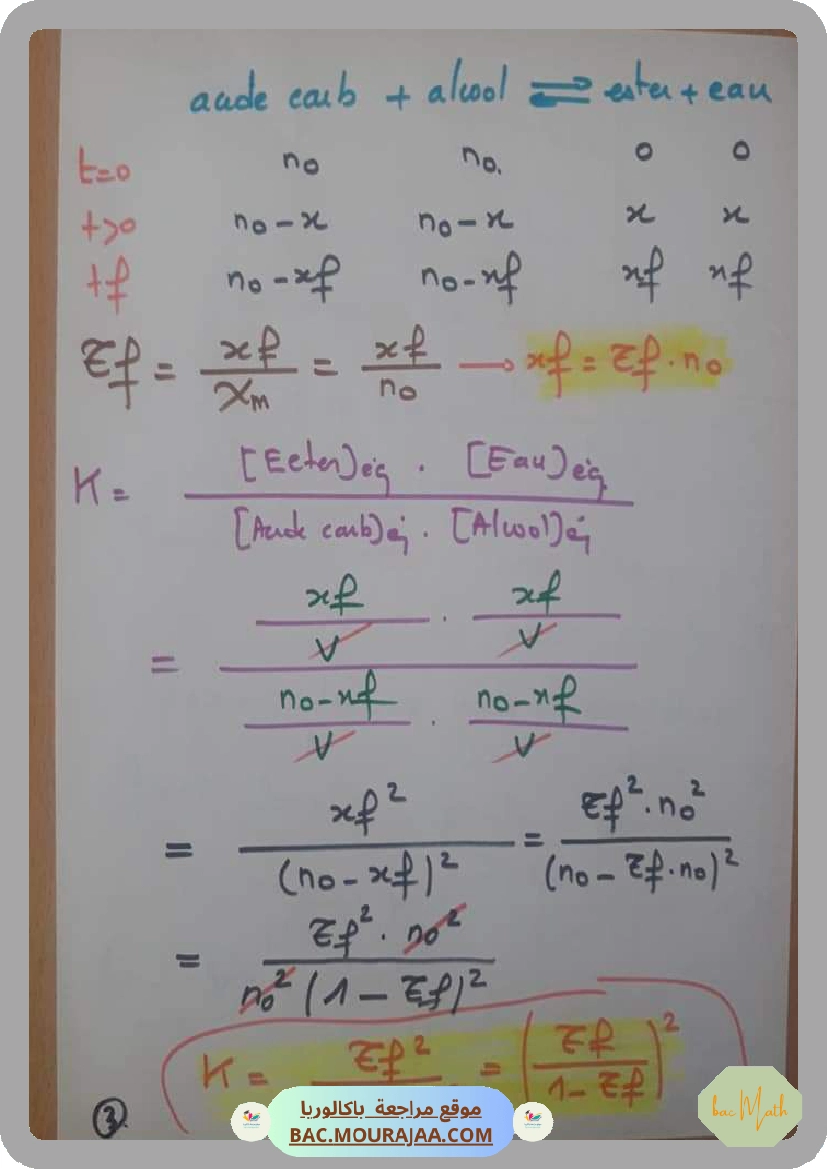 acide carb + alcool ⇌ ester + eau
t=0 n0 n0. 0 0
t>0 n0-x n0-x x x
tf n0-xf n0-xf xf xf
τf = xf/Xm = xf/n0 → xf = τf · n0
K = [Ester)éq · [Eau)éq / [Acide carb)éq · [Alcool)éq
= xf/V · xf/V / n0-xf/V · n0-xf/V
= xf²/(n0-xf)² = τf²·n0²/(n0-τf·n0)²
= τf²·n0²/n0²(1-τf)²
K = τf² = (τf/1-τf)²
3
موقع مراجعة باكالوريا
BAC.MOURAJAA.COM
bac Math